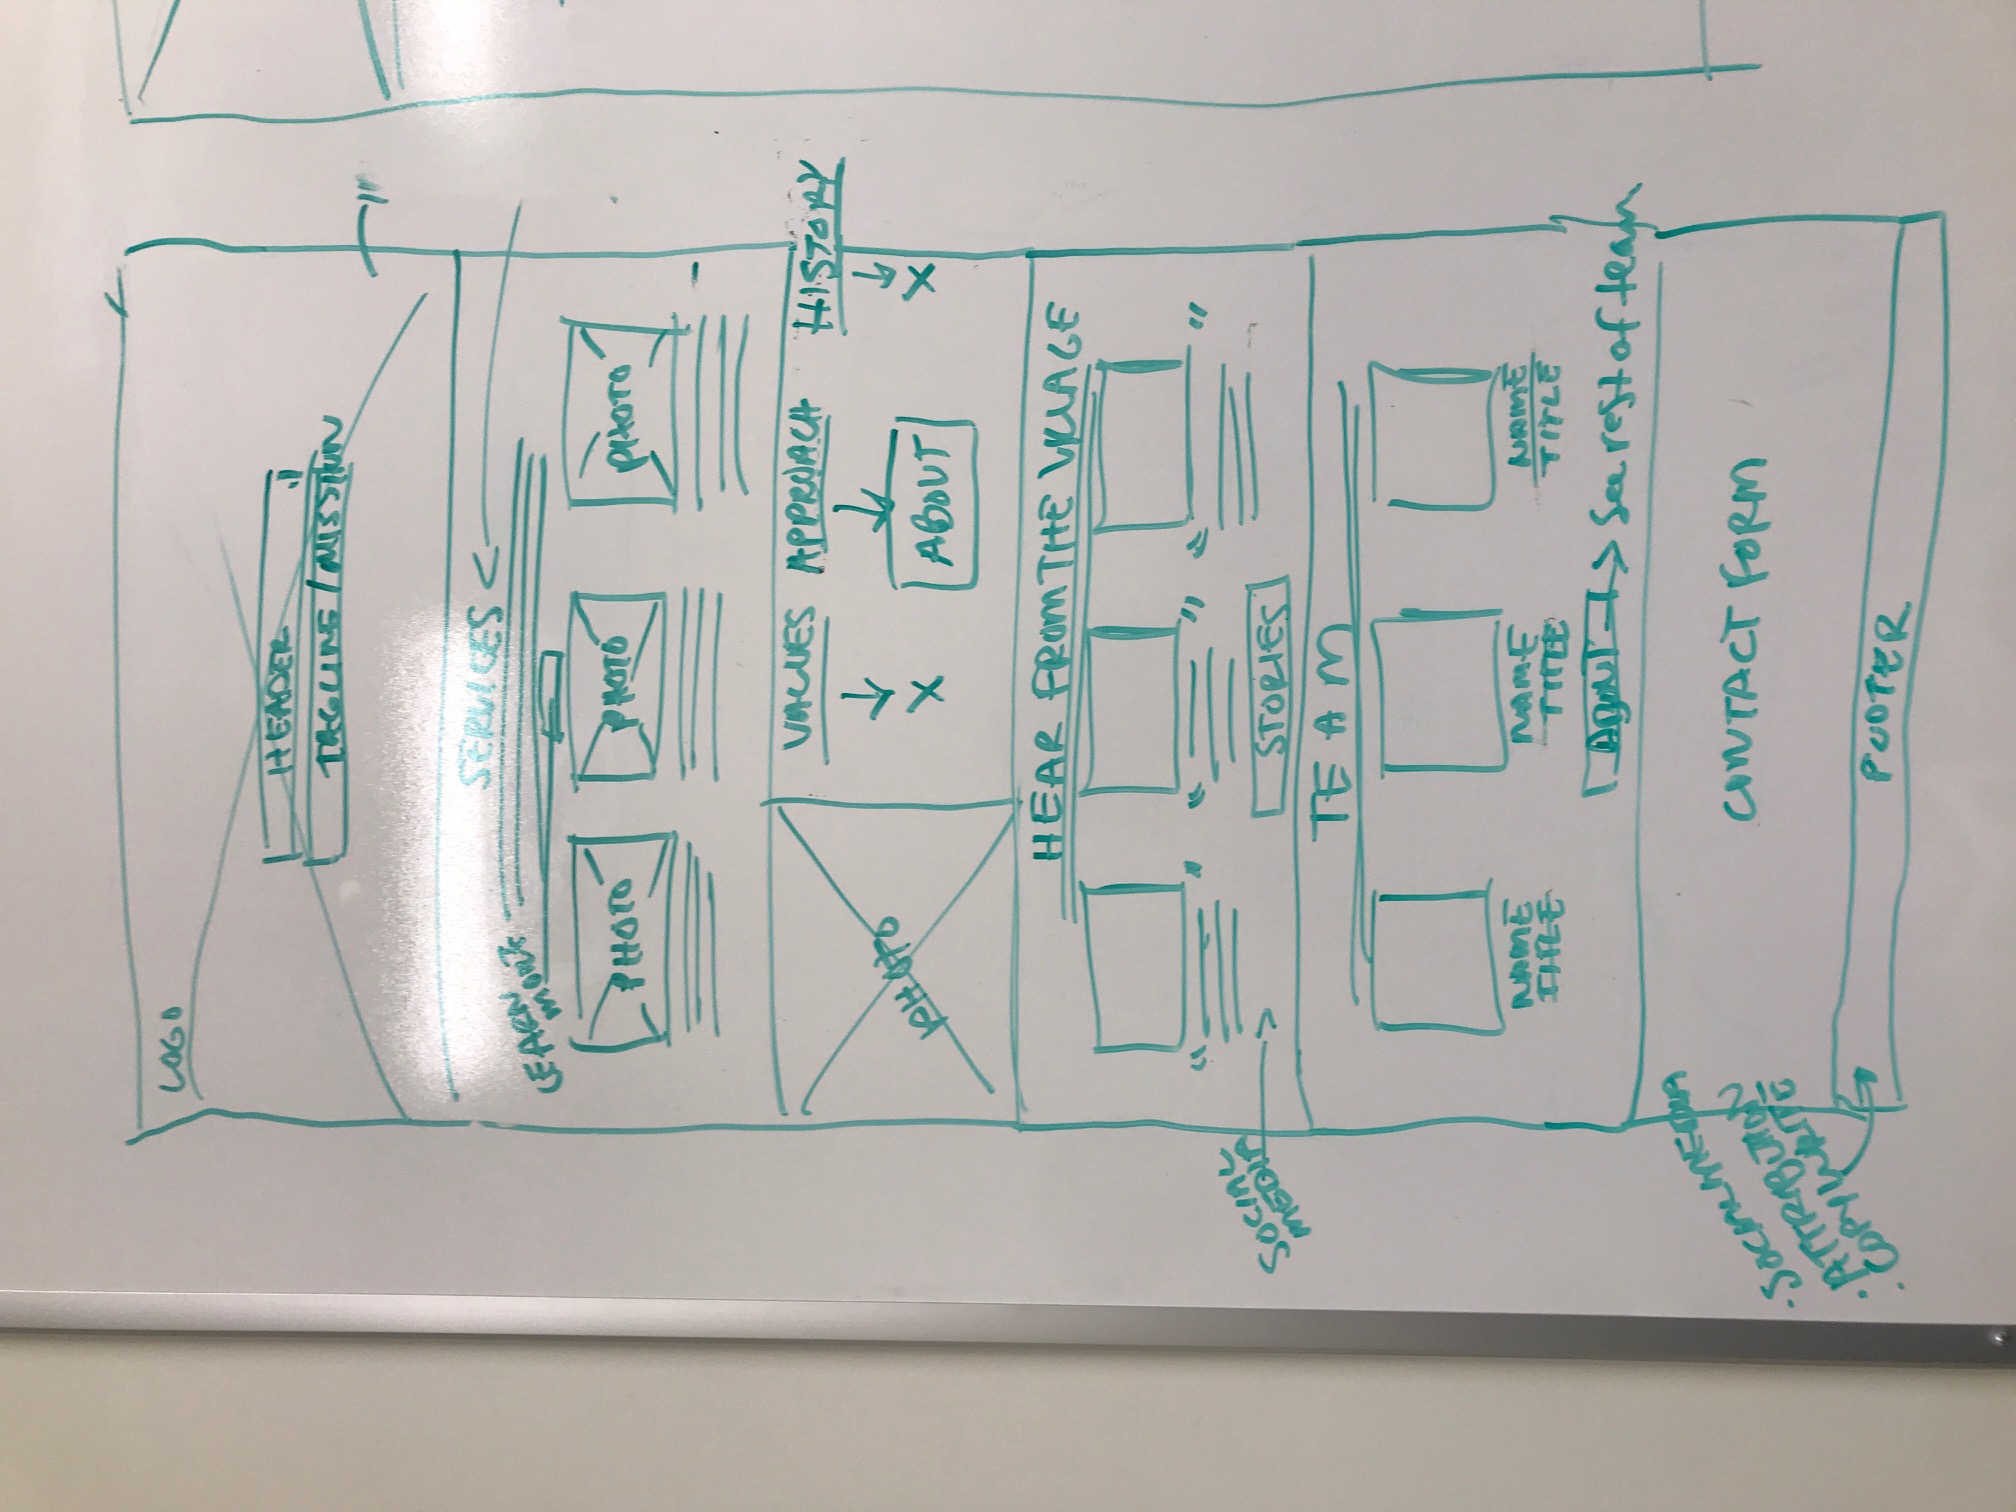 LOGO
HEADER
TAGLINE / MISSION
SERVICES
LEARN
MORE
PHOTO PHOTO PHOTO
PHOTO
VALUES APPROACH HISTORY
X ABOUT X
HEAR FROM THE VILLAGE
" " " " " "
SOCIAL
MEDIA
STORIES
TEAM
NAME NAME NAME
TITLE TITLE TITLE
ABOUT → See rest of team
· SOCIAL MEDIA
· ATTRIBUTION
· COPYWRITE
CONTACT FORM
FOOTER